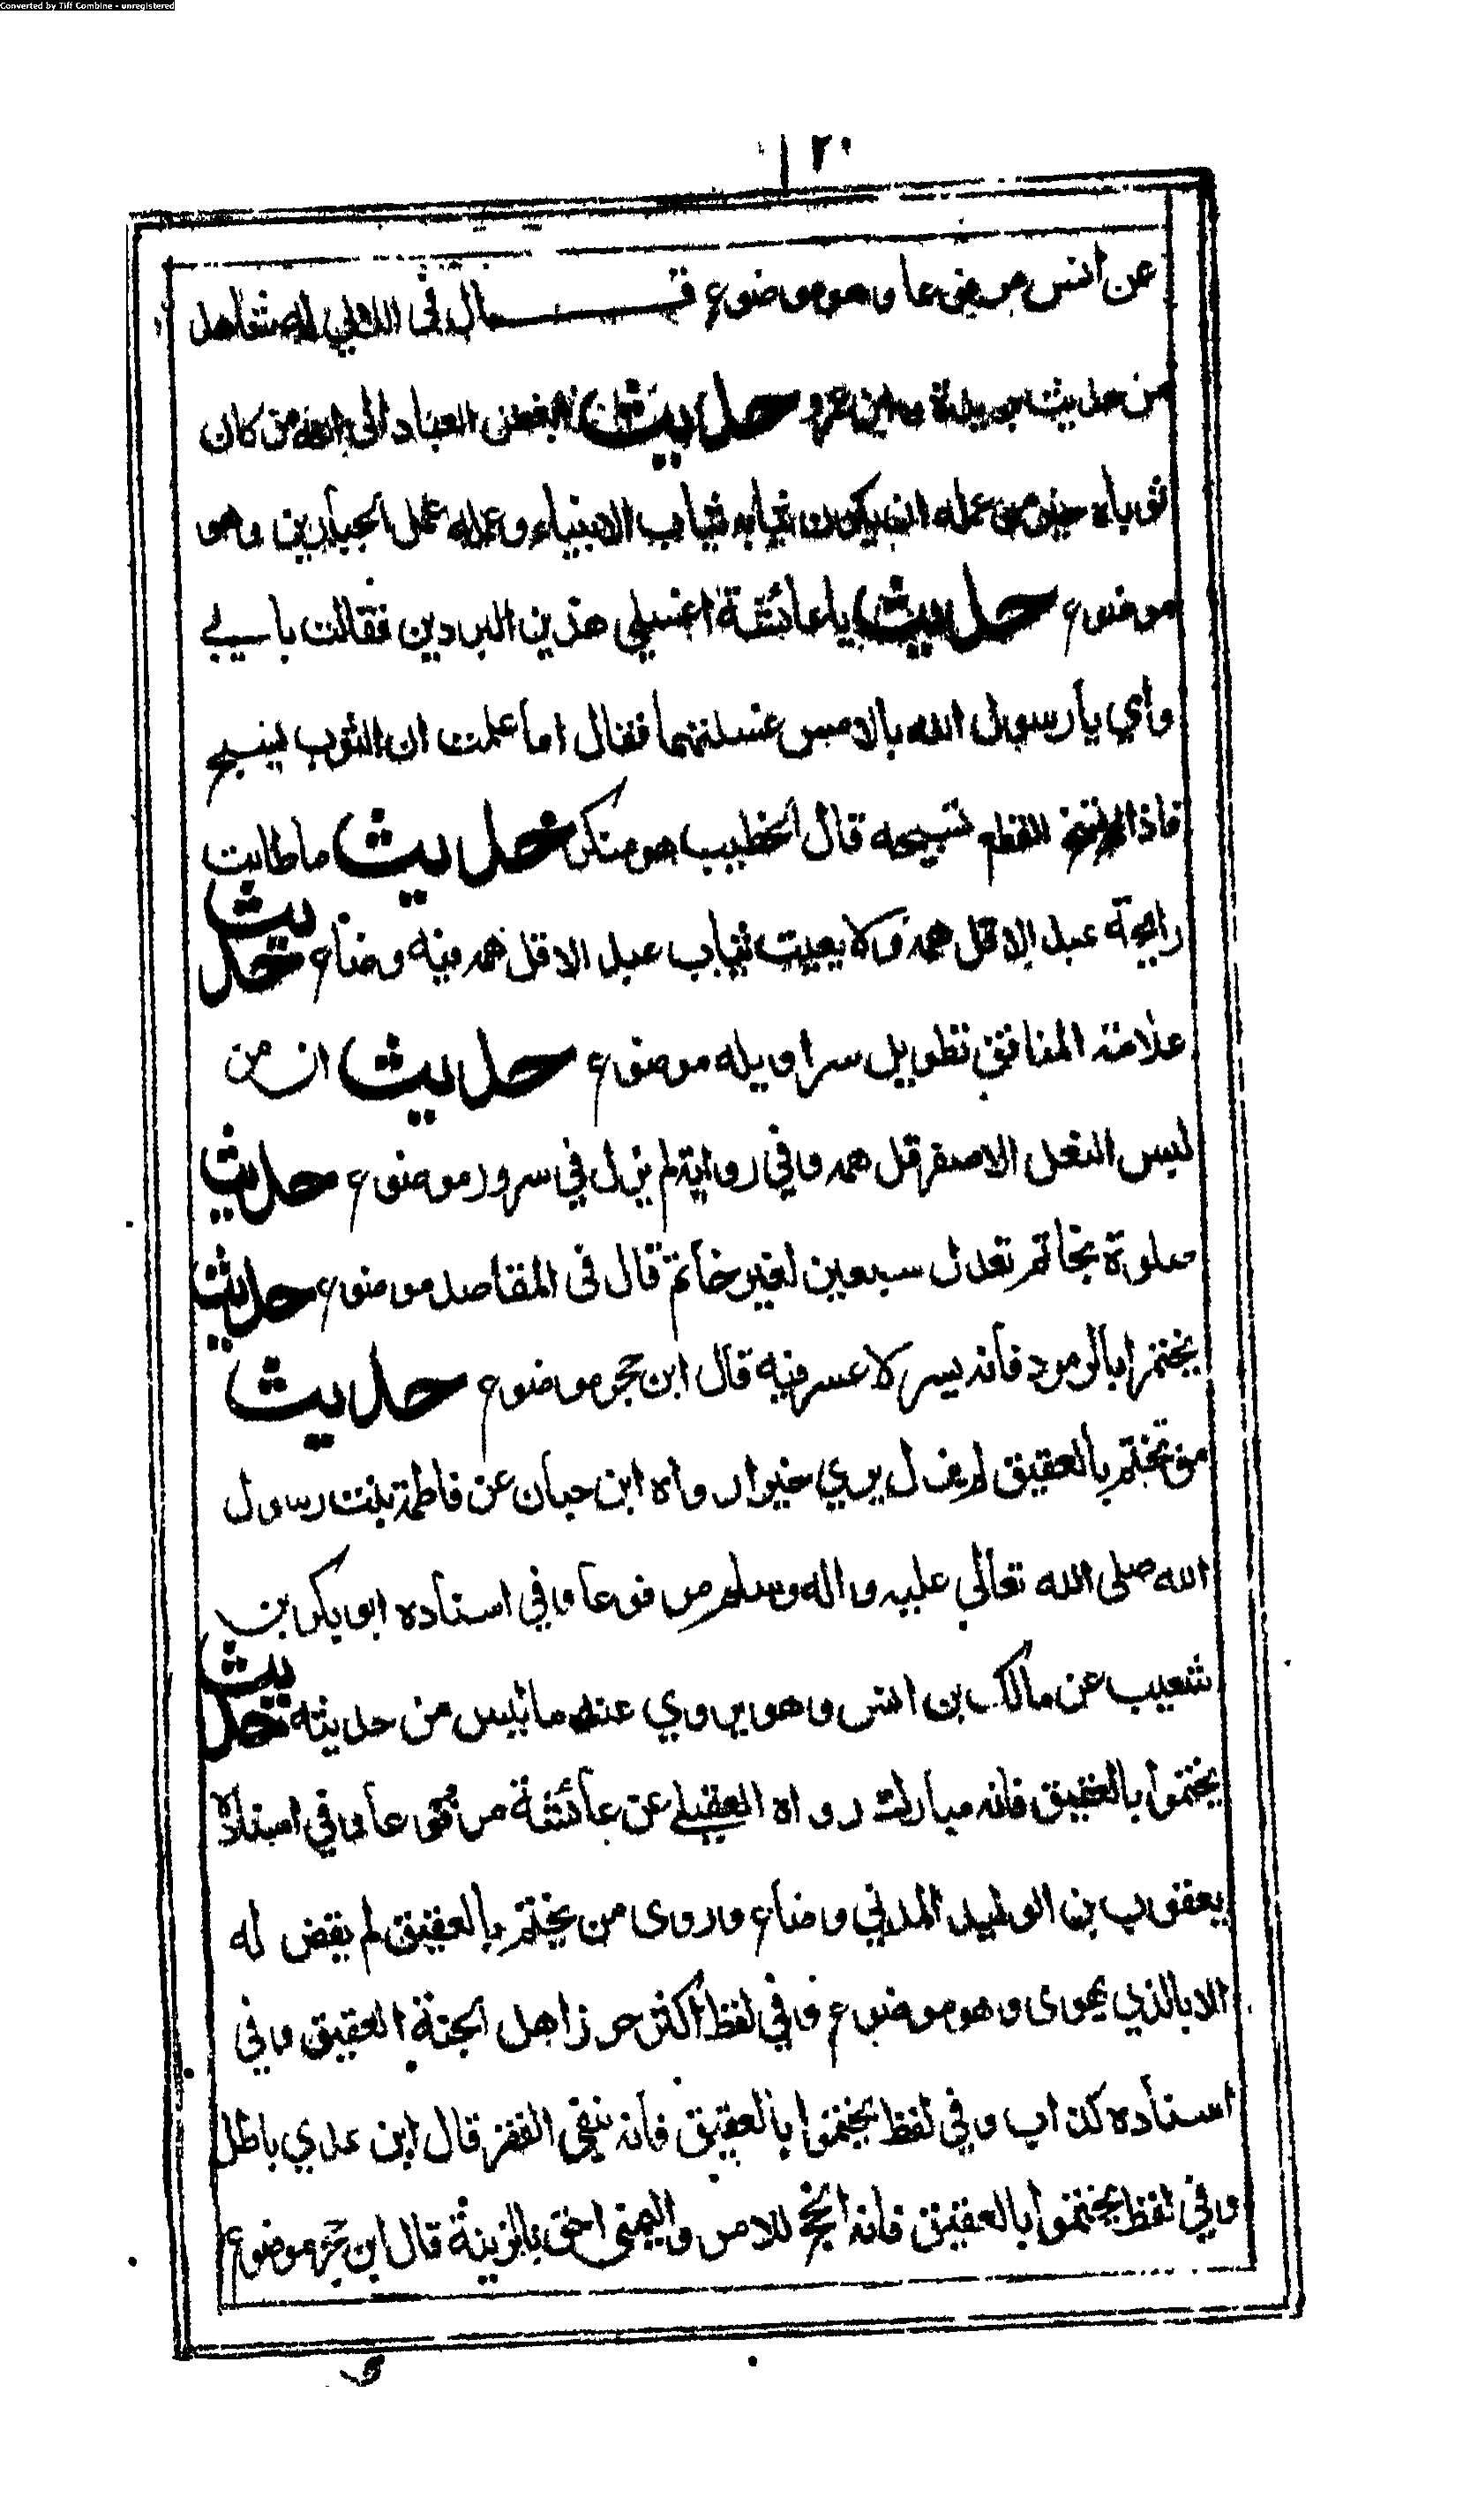 Converted by Tiff Combine - unregistered
١٢٠
عن انس مرفوعا وهو موضوع قال في اللالي له شاهد
من حديث بريدة وابن عمرو حديث ان ابغض العباد الى الله من كان
ثوباه خير من عمله ان يكون ثيابه ثياب الانبياء وعمله عمل الجبارين وهو
موضوع حديث يا عائشة اغسلي هذين البردين فقالت بابي
وأي يا رسول الله بالامس غسلتهما فقال اما علمت ان الثوب يسبح
فاذا اتسخ انقطع تسبيحه قال الخطيب هو منكر حديث ما طابت
رايحة عبد الا قل همه ولا ثياب عبد الا قل همه فيه وضاع حديث
علامة المنافق تطويل سراويله موضوع حديث ان من
لبس النعل الاصفر قل همه وفي رواية لم يزل في سرور موضوع حديث
صلوة بخاتم تعدل سبعين لغير خاتم قال في المقاصد موضوع حديث
تختموا بالزمرد فانه يسر لا عسر فيه قال ابن حجر موضوع حديث
من تختم بالعقيق لم يزل يري خيرا رواه ابن حبان عن فاطمة بنت رسول
الله صلى الله تعالي عليه واله وسلم مرفوعا وفي اسناده ابو بكر بن
شعيب عن مالك بن انس وهو يروي عنه ما ليس من حديثه حديث
تختموا بالعقيق فانه مبارك رواه العقيلي عن عائشة مرفوعا وفي اسناده
يعقوب بن الوليد المدني وضاع وروى من تختم بالعقيق لم يقض له
الا بالذي يهوى وهو موضوع وفي لفظ اكثر خرز اهل الجنة العقيق وفي
اسناده كذاب وفي لفظ تختموا بالعقيق فانه ينفي الفقر قال ابن عدي باطل
وفي لفظ تختموا بالعقيق فانه انجح للامر واليمنى احق بالزينة قال ابن حجر موضوع